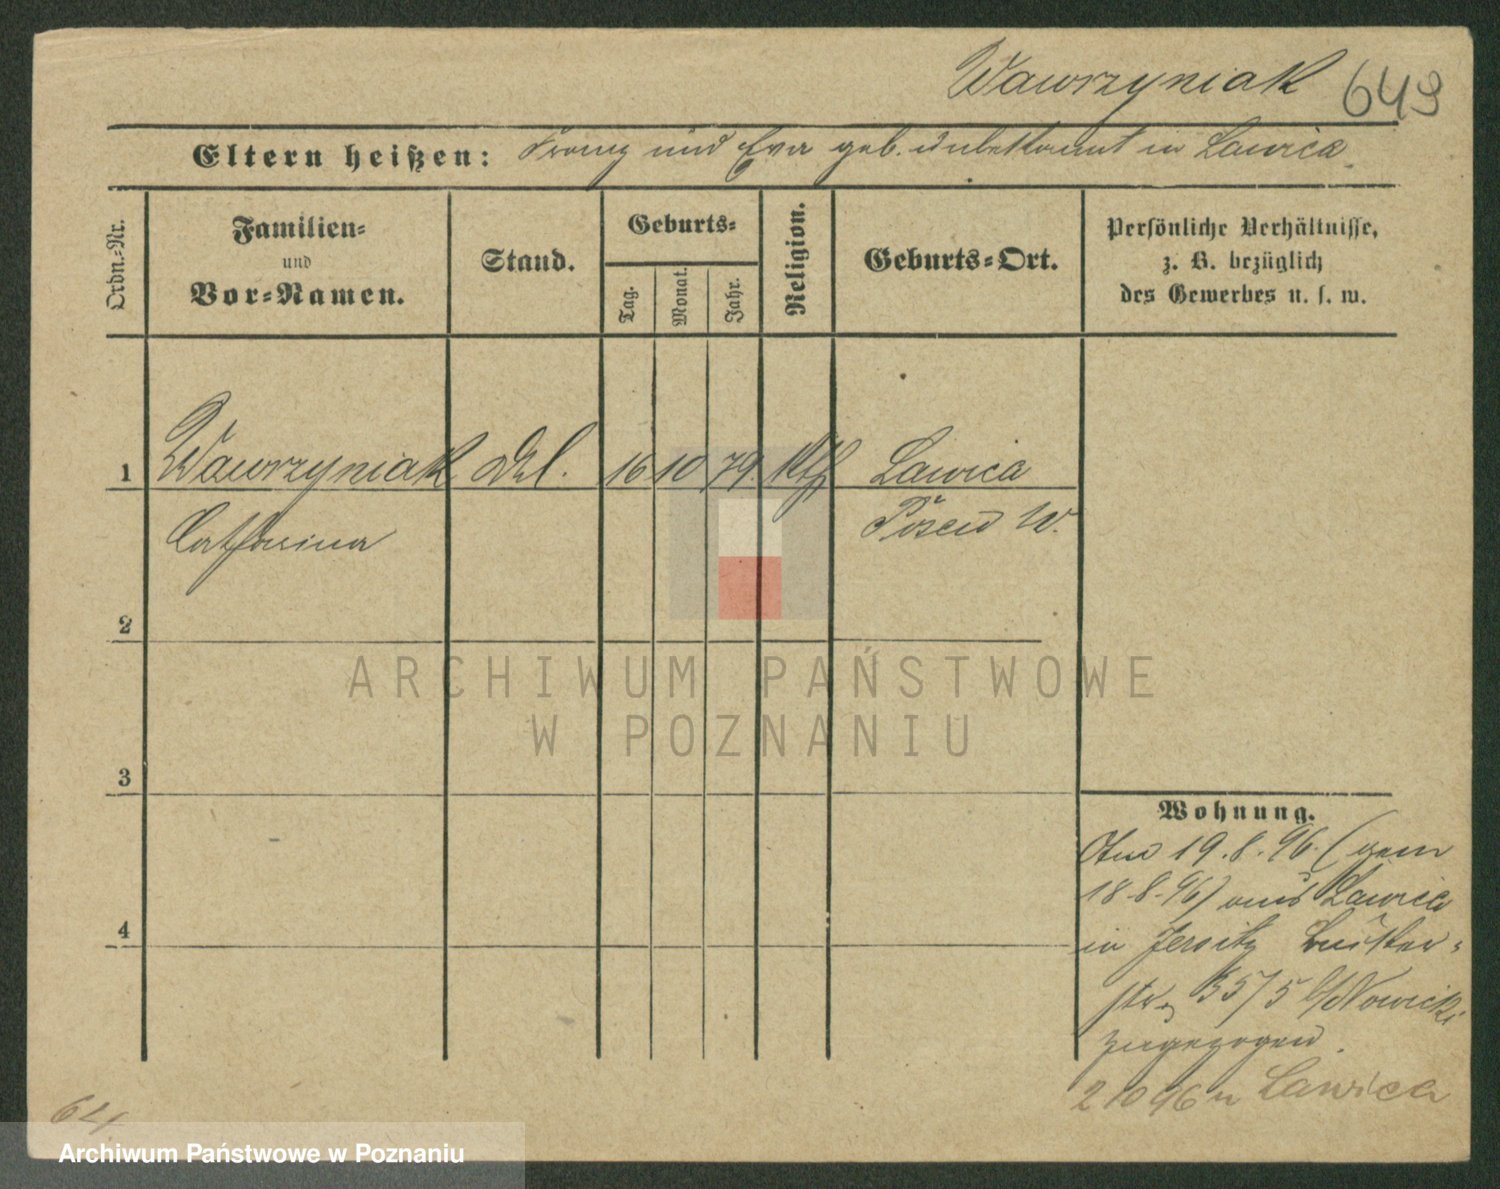 Wawrzyniak 649
Eltern heißen: Franz und Eva geb. unbekannt in Lawica
Ordn.-Nr.
Familien-
und
Vor-Namen.
Stand.
Geburts-
Tag.
Monat.
Jahr.
Religion.
Geburts-Ort.
Persönliche Verhältnisse,
z. B. bezüglich
des Gewerbes u. s. w.
1 Wawrzyniak 16 10 79. Kth Lawica
Catharina Posen W.
2
ARCHIWUM PAŃSTWOWE
W POZNANIU
3
Wohnung.
Am 19.8.96. (gem
18.8.96) aus Lawica
4
in Jersitz
str. 35/5 b/Nowicki
zugezogen.
2 10 96 n Lawica
64
Archiwum Państwowe w Poznaniu